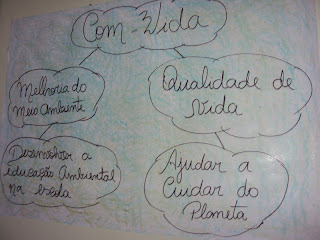 Com-Vida
Melhoria do
Meio Ambiente
Qualidade de
Vida
Desenvolver a
educação Ambiental
na escola
Ajudar a
Cuidar do
Planeta